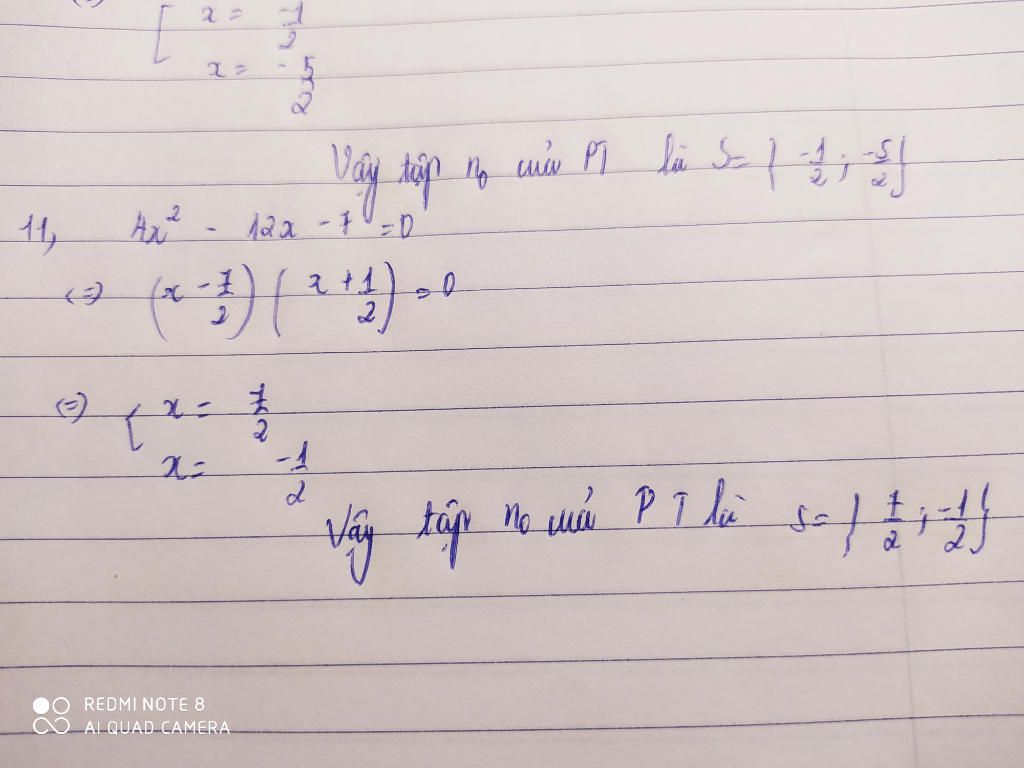 [ x = -1/2
x = -5/2
Vậy tập n₀ của PT là S = { -1/2 ; -5/2 }
11, 4x² - 12x - 7 = 0
<=> (x - 7/2) ( x + 1/2 ) = 0
<=> [ x = 7/2
x = -1/2
Vậy tập n₀ của PT là S = { 7/2 ; -1/2 }
REDMI NOTE 8
AI QUAD CAMERA